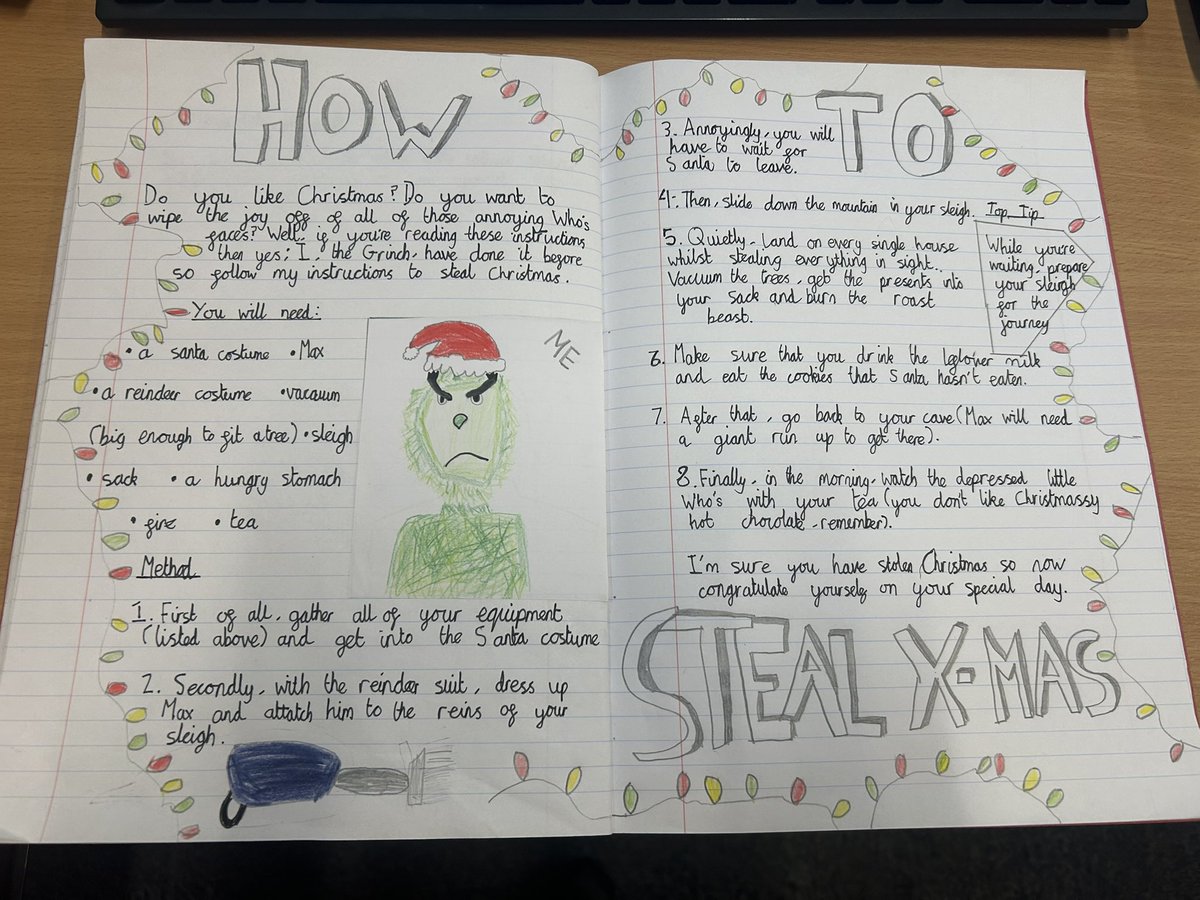 HOW
Do you like Christmas? Do you want to
wipe the joy off of all of those annoying Who's
faces? Well, if you're reading these instructions
then yes; I, the Grinch, have done it before
so follow my instructions to steal Christmas.
You will need:
• a santa costume • Max
• a reindeer costume • vacuum
(big enough to fit a tree) • sleigh
• sack • a hungry stomach
• fire • tea
ME
Method
1. First of all, gather all of your equipment
(listed above) and get into the Santa costume
2. Secondly, with the reindeer suit, dress up
Max and attatch him to the reins of your
sleigh.
TO
3. Annoyingly, you will
have to wait for
Santa to leave.
4. Then, slide down the mountain in your sleigh.
Top Tip
While you're
waiting, prepare
your sleigh
for the
journey
5. Quietly, land on every single house
whilst stealing everything in sight..
Vacuum the trees, get the presents into
your sack and burn the roast
beast.
6. Make sure that you drink the leftover milk
and eat the cookies that Santa hasn't eaten.
7. After that, go back to your cave (Max will need
a giant run up to get there).
8. Finally, in the morning, watch the depressed little
Who's with your tea (you don't like Christmassy
hot chocolate, remember).
I'm sure you have stolen Christmas so now
congratulate yourself on your special day.
STEAL X-MAS